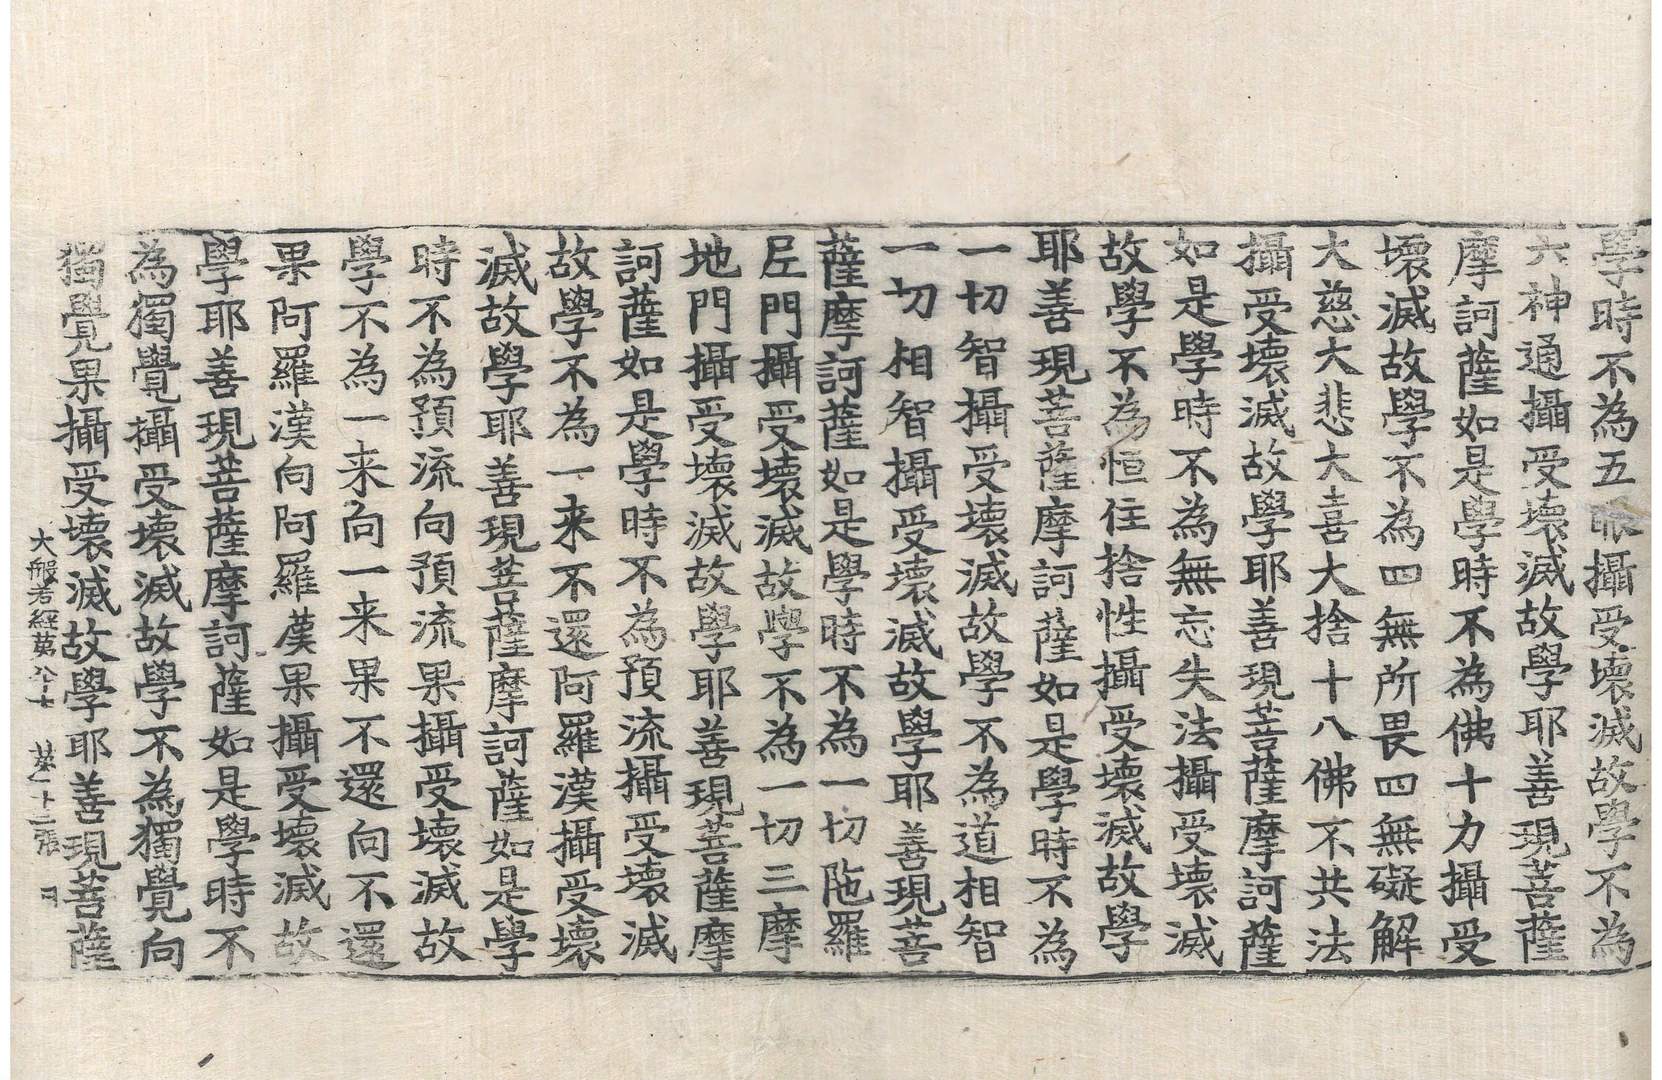 學時不為五眼攝受壞滅故學不為
六神通攝受壞滅故學耶善現菩薩
摩訶薩如是學時不為佛十力攝受
壞滅故學不為四無所畏四無礙解
大慈大悲大喜大捨十八佛不共法
攝受壞滅故學耶善現菩薩摩訶薩
如是學時不為無忘失法攝受壞滅
故學不為恒住捨性攝受壞滅故學
耶善現菩薩摩訶薩如是學時不為
一切智攝受壞滅故學不為道相智
一切相智攝受壞滅故學耶善現菩
薩摩訶薩如是學時不為一切陁羅
尼門攝受壞滅故學不為一切三摩
地門攝受壞滅故學耶善現菩薩摩
訶薩如是學時不為預流攝受壞滅
故學不為一来不還阿羅漢攝受壞
滅故學耶善現菩薩摩訶薩如是學
時不為預流向預流果攝受壞滅故
學不為一来向一来果不還向不還
果阿羅漢向阿羅漢果攝受壞滅故
學耶善現菩薩摩訶薩如是學時不
為獨覺攝受壞滅故學不為獨覺向
獨覺果攝受壞滅故學耶善現菩薩
大般若經第八十 第二十三張 月